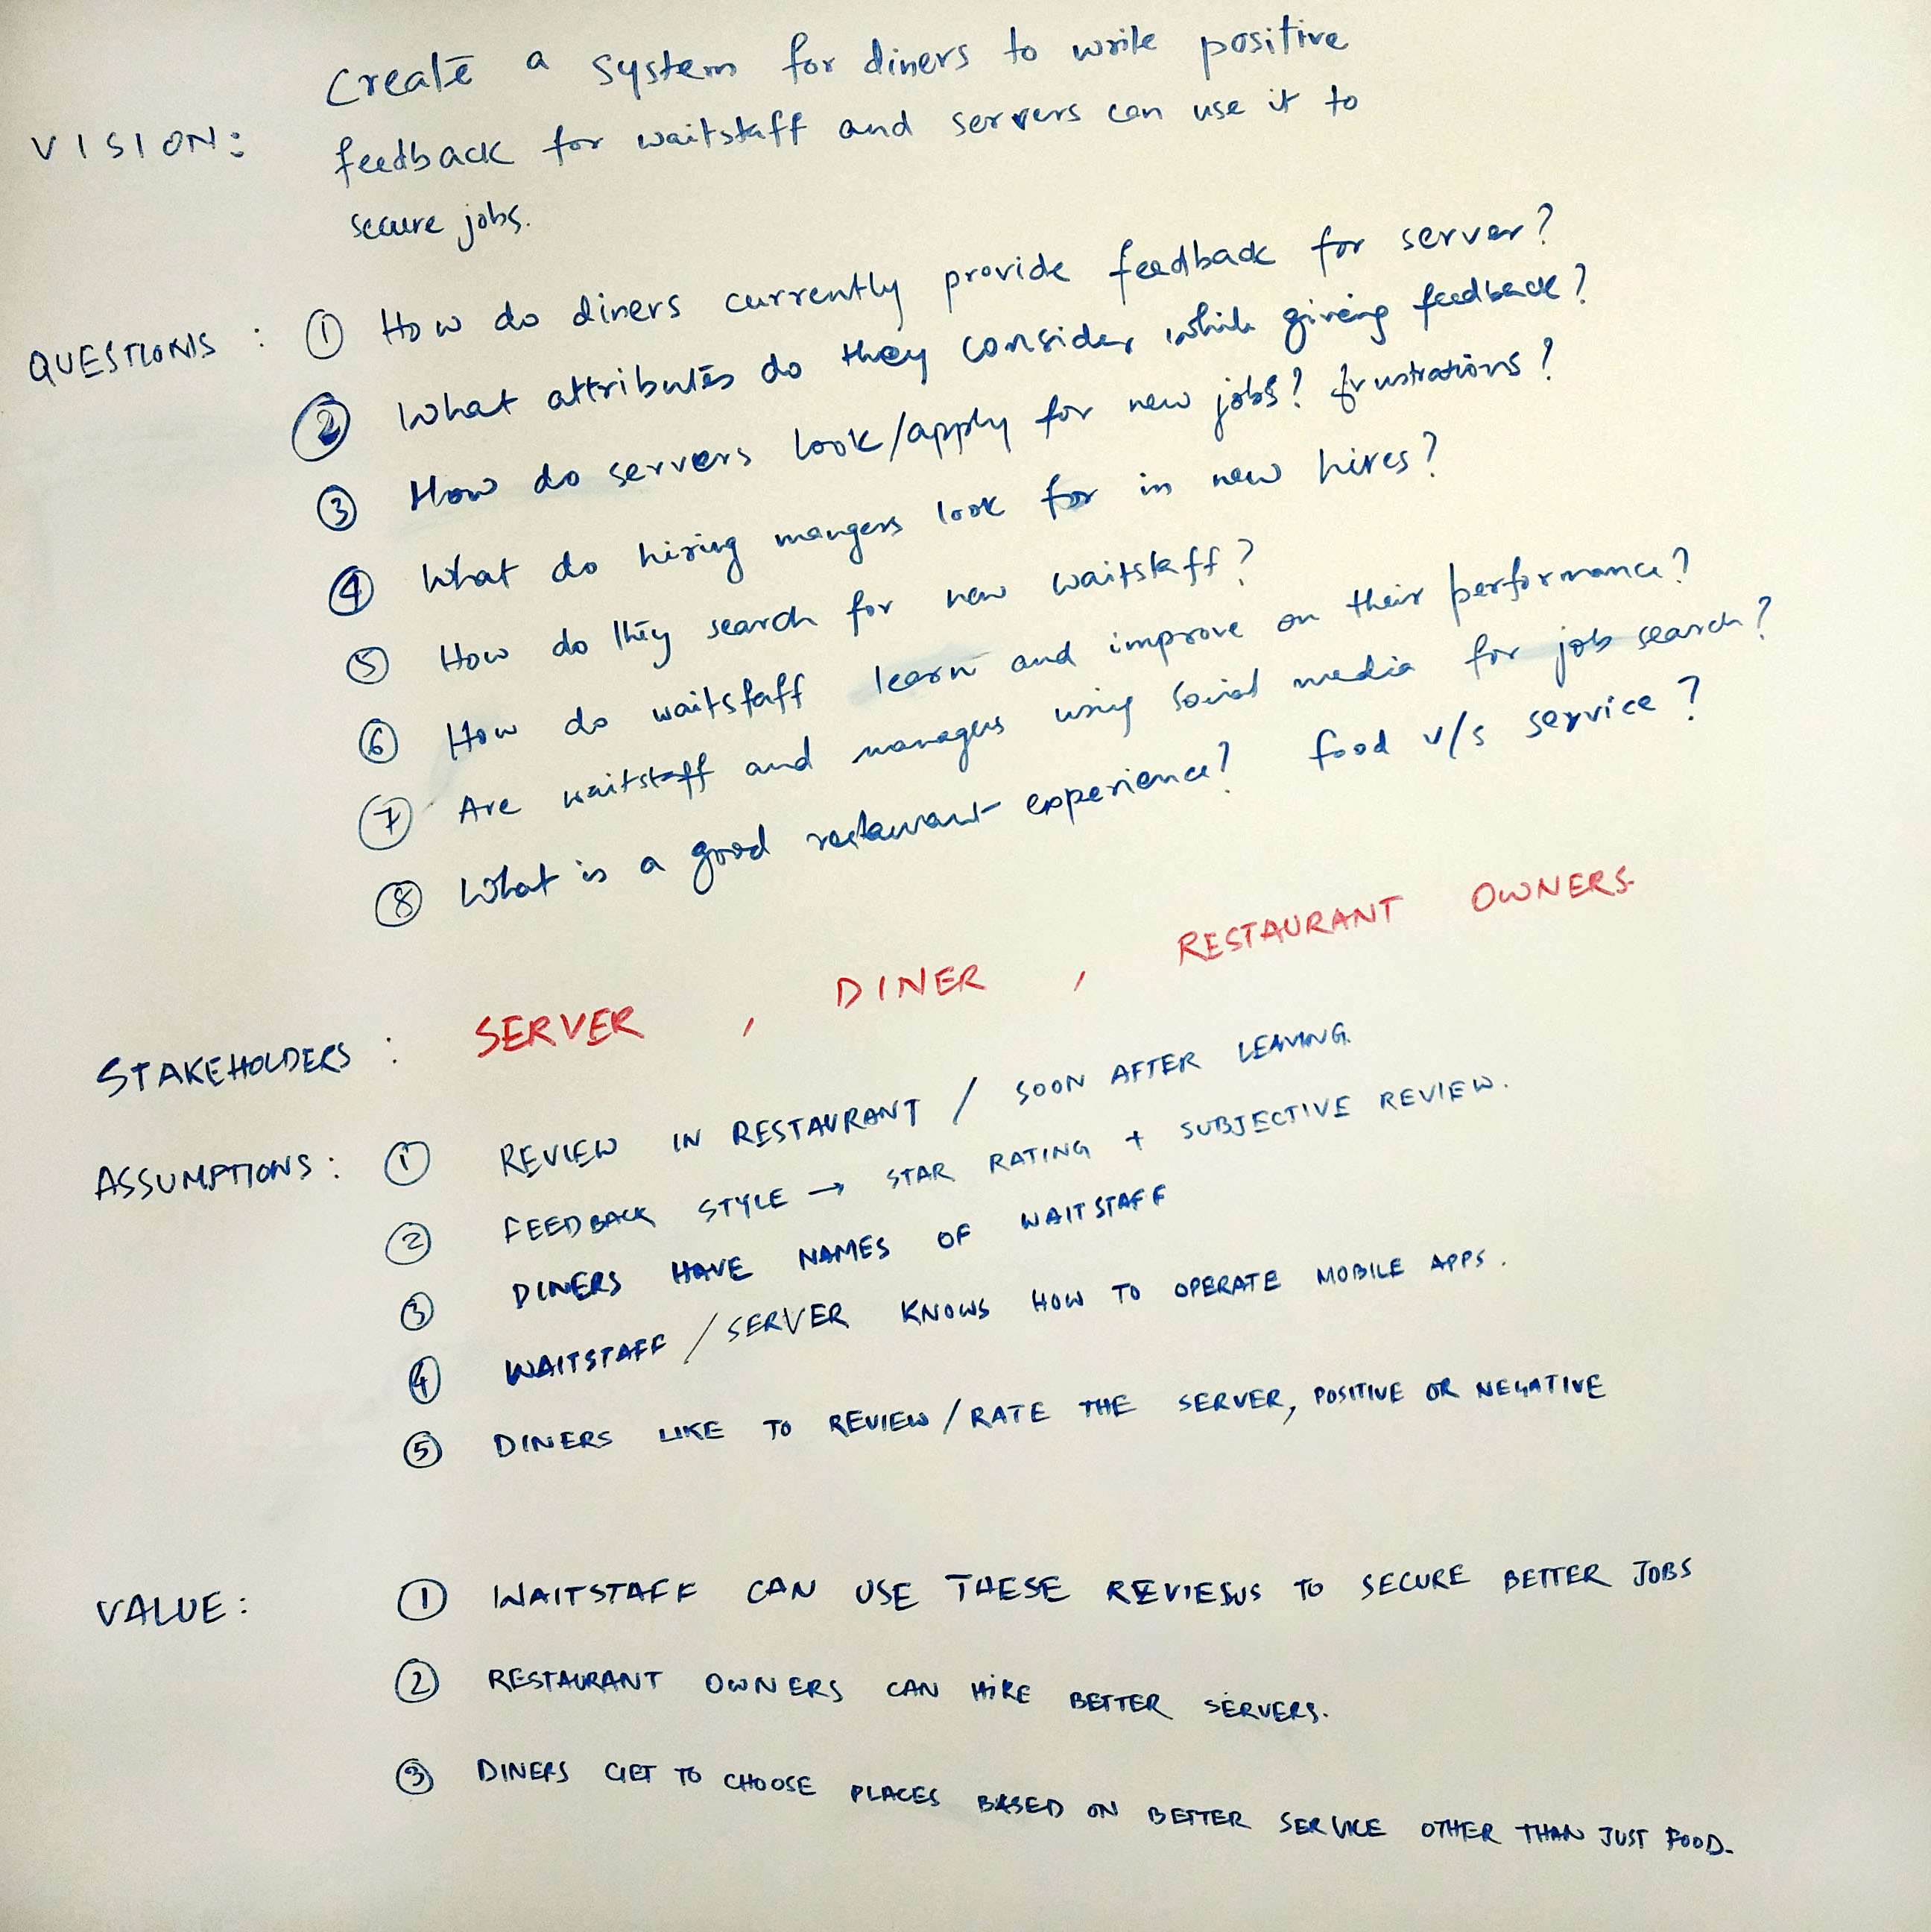 Create a system for diners to write positive
VISION: feedback for waitstaff and servers can use it to
secure jobs.
QUESTIONS : ① How do diners currently provide feedback for server?
② What attributes do they consider while giving feedback?
③ How do servers look/apply for new jobs? frustrations?
④ What do hiring mangers look for in new hires?
⑤ How do they search for new waitstaff?
⑥ How do waitstaff learn and improve on their performance?
⑦ Are waitstaff and managers using social media for job search?
⑧ What is a good restaurant experience? food v/s service?
STAKEHOLDERS : SERVER , DINER , RESTAURANT OWNERS.
ASSUMPTIONS : ① REVIEW IN RESTAURANT / SOON AFTER LEAVING.
② FEEDBACK STYLE → STAR RATING + SUBJECTIVE REVIEW.
③ DINERS HAVE NAMES OF WAITSTAFF
④ WAITSTAFF / SERVER KNOWS HOW TO OPERATE MOBILE APPS.
⑤ DINERS LIKE TO REVIEW / RATE THE SERVER, POSITIVE OR NEGATIVE
VALUE : ① WAITSTAFF CAN USE THESE REVIEWS TO SECURE BETTER JOBS
② RESTAURANT OWNERS CAN HIRE BETTER SERVERS.
③ DINERS GET TO CHOOSE PLACES BASED ON BETTER SERVICE OTHER THAN JUST FOOD.